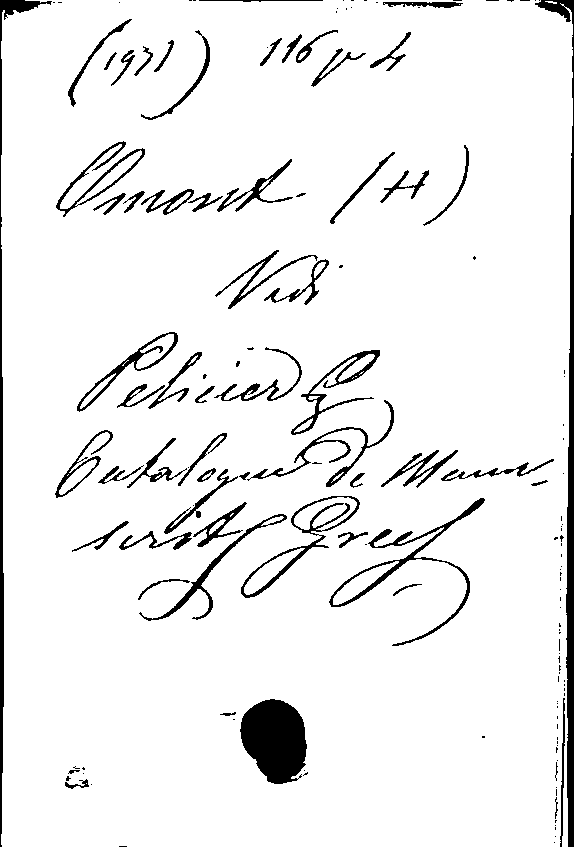 (1931) 116 γ 4
Omont (H)
Vedi
Pelicier G
Catalogue de Manu-
scrits Grecs